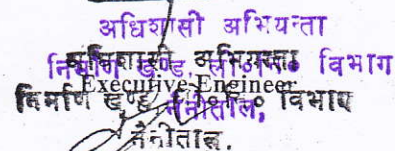 अधिशासी अभियन्ता
अधिशासी अभियन्ता
निर्माण खण्ड, लो०नि० विभाग
Executive Engineer
निर्माण खण्ड, विभाग
नैनीताल,
नैनीताल.